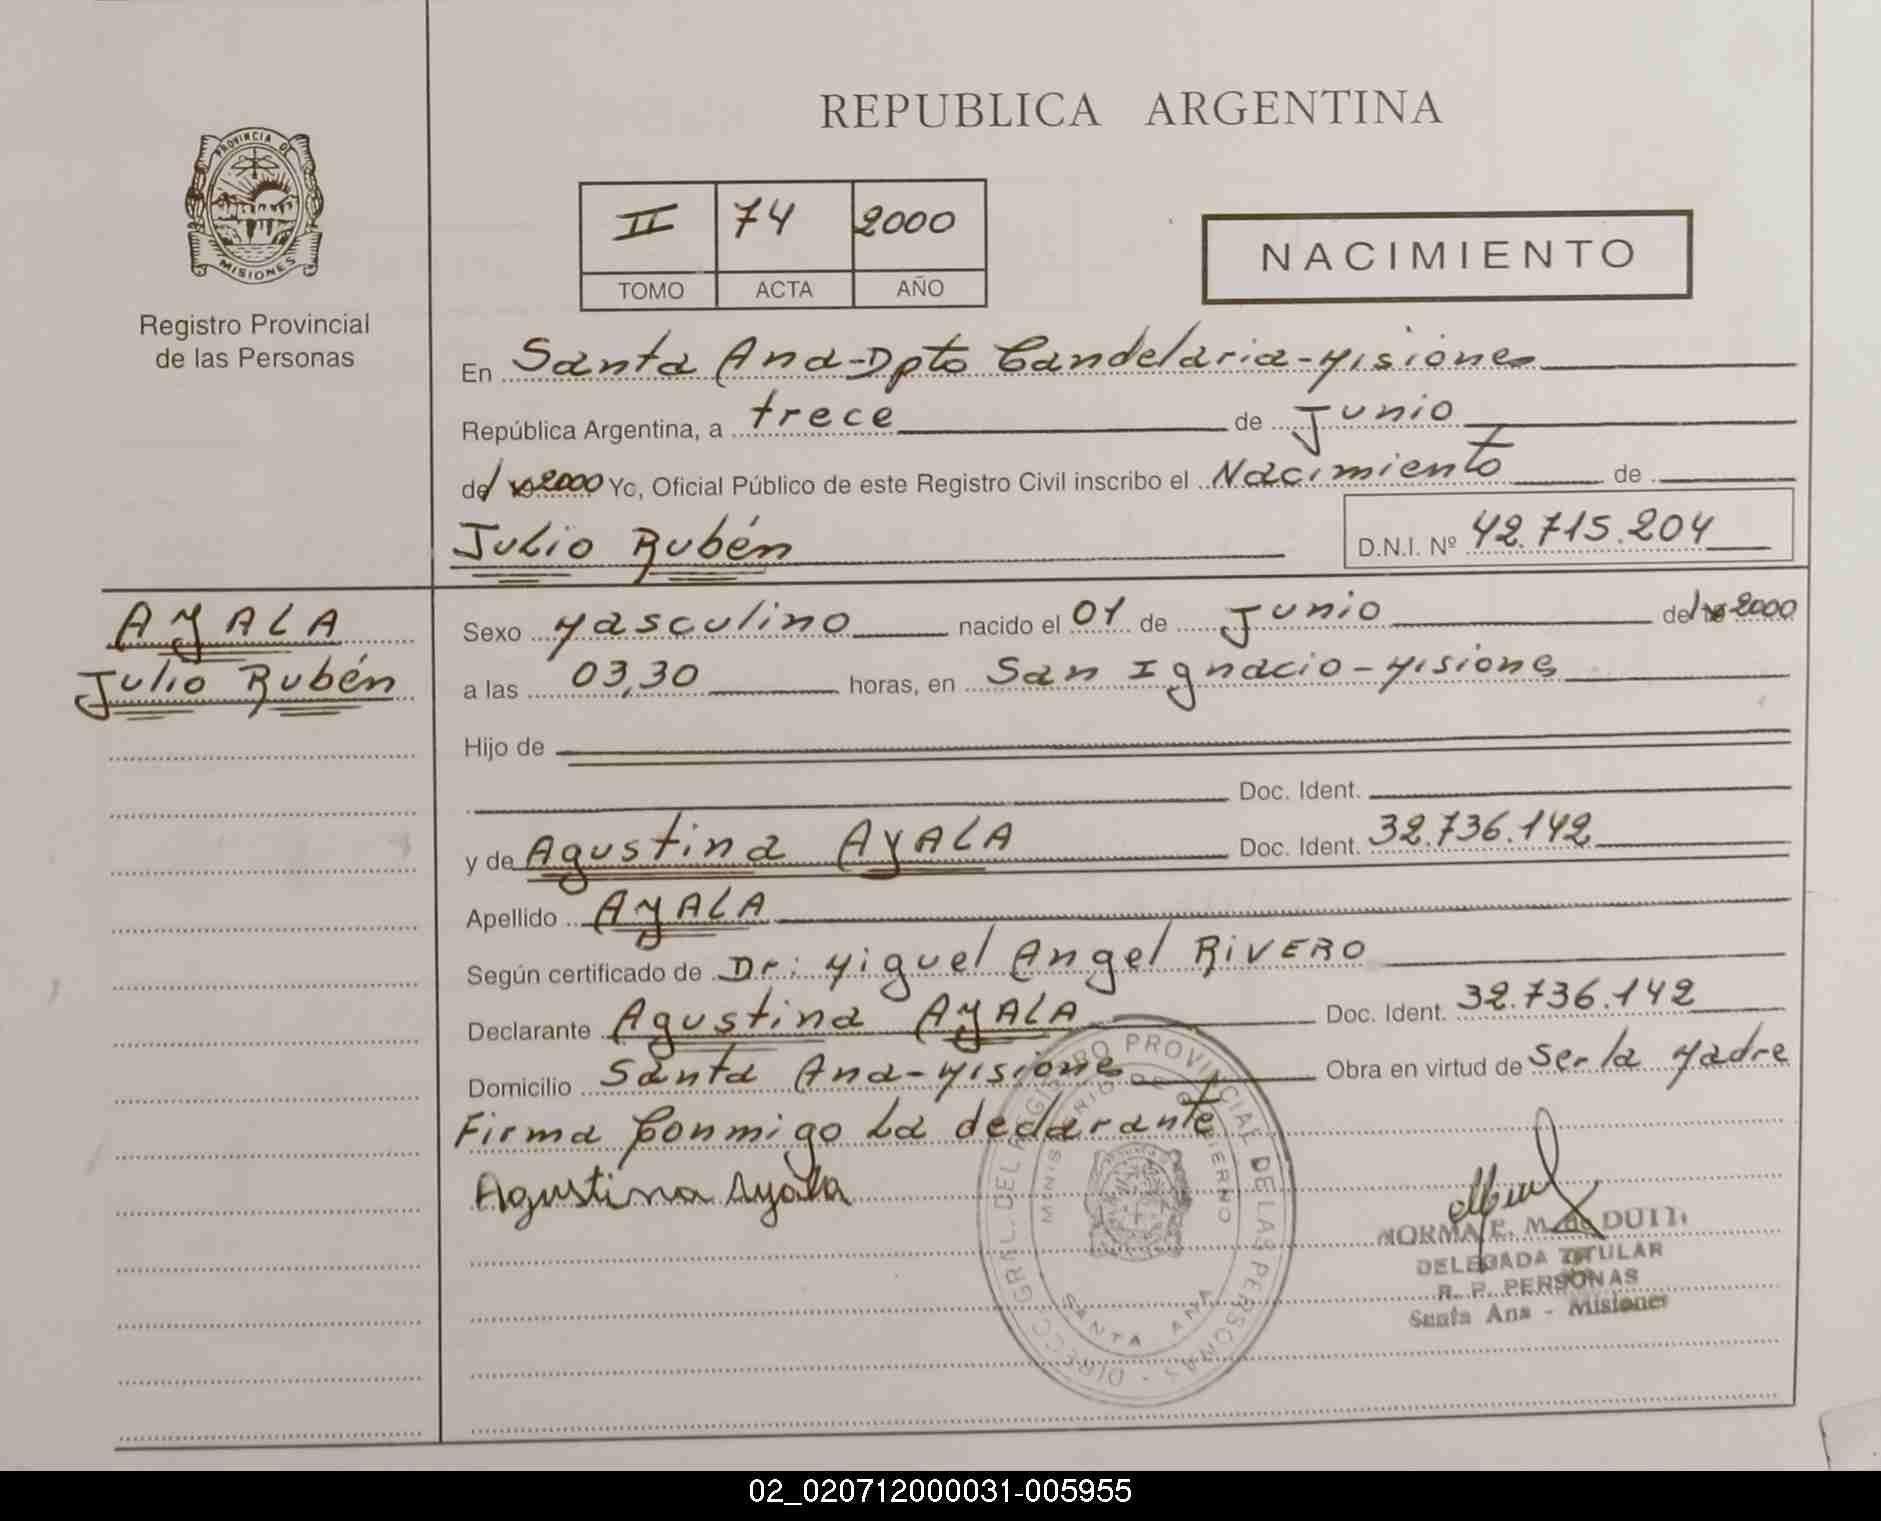 REPUBLICA ARGENTINA
PROVINCIA DE
MISIONES
Registro Provincial
de las Personas
II 74 2000
TOMO ACTA AÑO
NACIMIENTO
En Santa Ana-Dpto Candelaria-Misiones
República Argentina, a trece de Junio
del 2000 Yo, Oficial Público de este Registro Civil inscribo el Nacimiento de
Julio Rubén
D.N.I. Nº 42.715.204
AYALA
Julio Rubén
Sexo Masculino nacido el 01 de Junio del 2000
a las 03,30 horas, en San Ignacio-Misiones
Hijo de
Doc. Ident.
y de Agustina AYALA Doc. Ident. 32.736.142
Apellido AYALA
Según certificado de Dr: Miguel Angel RIVERO
Declarante Agustina AYALA Doc. Ident. 32.736.142
Domicilio Santa Ana-Misiones Obra en virtud de Ser la Madre
Firma Conmigo La declarante
Agustina Ayala
DIRECC. GRAL. DEL REGISTRO PROVINCIAL DE LAS PERSONAS -
MINISTERIO DE GOBIERNO
SANTA ANA
NORMA E. M. de
DELEGADA TITULAR
R. P. PERSONAS
Santa Ana - Misiones
02_020712000031-005955